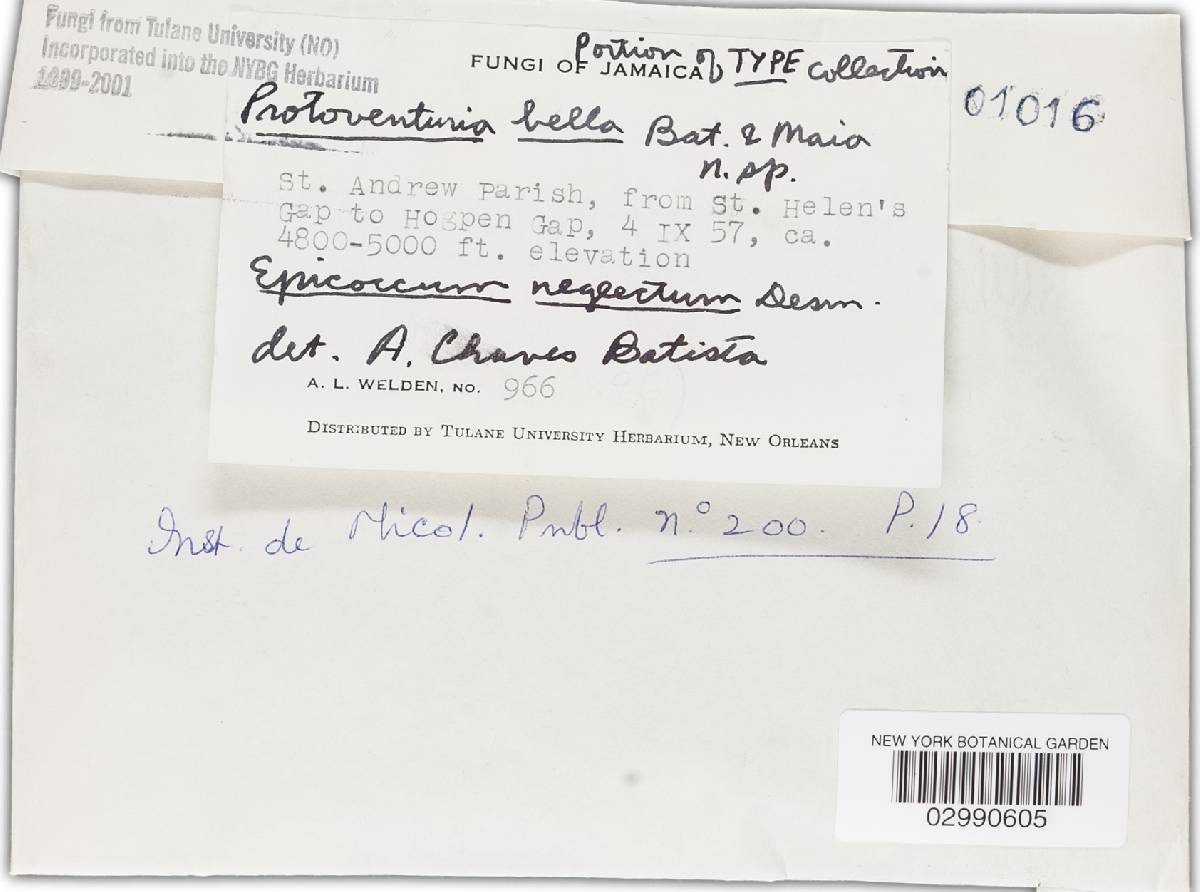 Fungi from Tulane University (NO)
Incorporated into the NYBG Herbarium
1999-2001
Portion of TYPE collection
FUNGI OF JAMAICA
01016
Protoventuria bella Bat. & Maia
n. sp.
St. Andrew Parish, from St. Helen's
Gap to Hogpen Gap, 4 IX 57, ca.
4800-5000 ft. elevation
Epicoccum neglectum Desm.
det. A. Chaves Batista
A. L. WELDEN, NO. 966
DISTRIBUTED BY TULANE UNIVERSITY HERBARIUM, NEW ORLEANS
Inst. de Micol. Publ. n.º 200. P. 18
NEW YORK BOTANICAL GARDEN
02990605